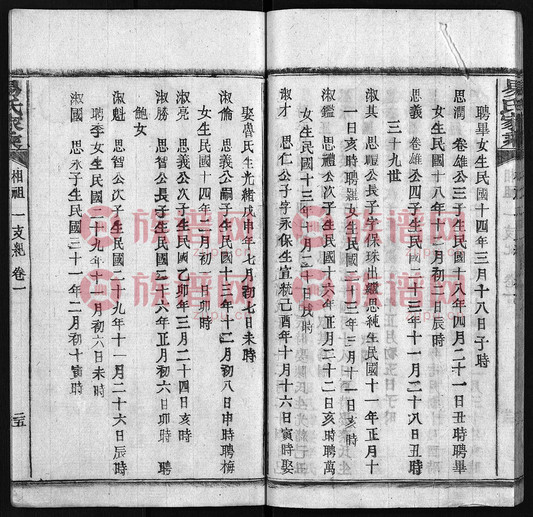 聘畢女生民國十四年三月十八日子時
思潤 卷雄公三子生民國十八年四月二十一日丑時聘畢
女生民國十八年十二月初二日辰時
思義 卷雄公四子生民國二十三年十一月二十八日丑時
三十九世
淑其 思繼公長子字保珠出繼思純生民國十一年正月十
一日亥時聘羅女生民國 三年三月十一日亥時
淑鑑 思禮公長子生民國十四年正月二十二日亥時聘萬
女生民國十三年 月初 日 時
淑才 思仁公子字永保生宣統己酉年十月十六日寅時娶
娶詹氏生光緒戊申年七月初七日未時
淑倫 思義公嗣子生民國十一年十二月初八日申時聘梅
女生民國十四年二月初一日卯時
淑亮 思義公次子生民國乙卯年三月二十四日亥時
淑勝 思智公長子生民國二十六年正月初六日卯時 聘
鮑女
淑魁 思智公次子生民國二十九年十一月二十六日辰時
聘李女生民國二十九年十 月初六日未時
淑國 思永子生民國三十一年二月初十寅時
易氏家乘
相祖 一支系 卷一
二五
族谱网
zupu.cn